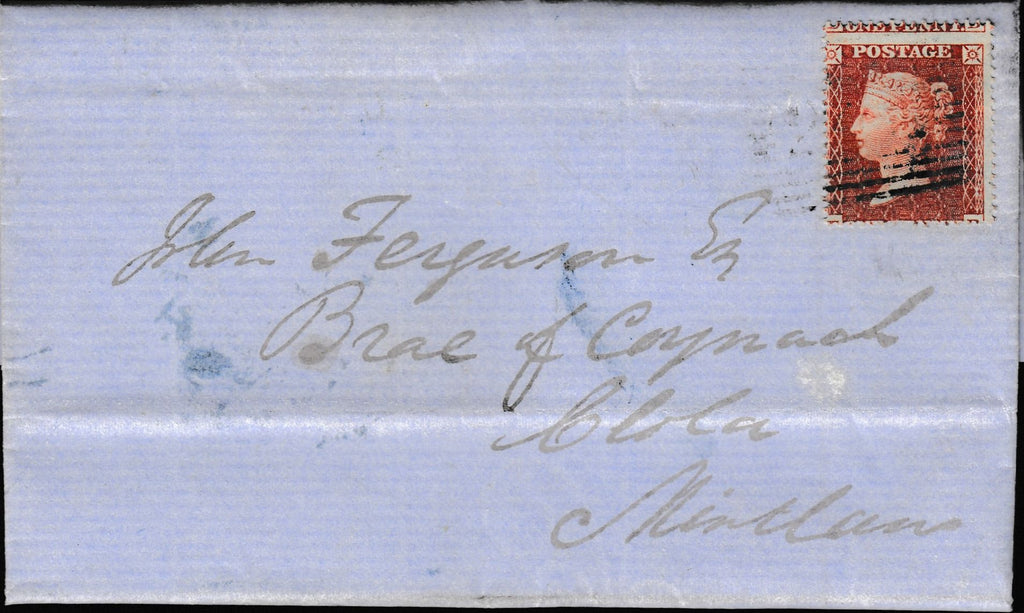 ONE PENNY.
POSTAGE
John Ferguson Esq
Brae of Coynach
Clola
Mintlaw